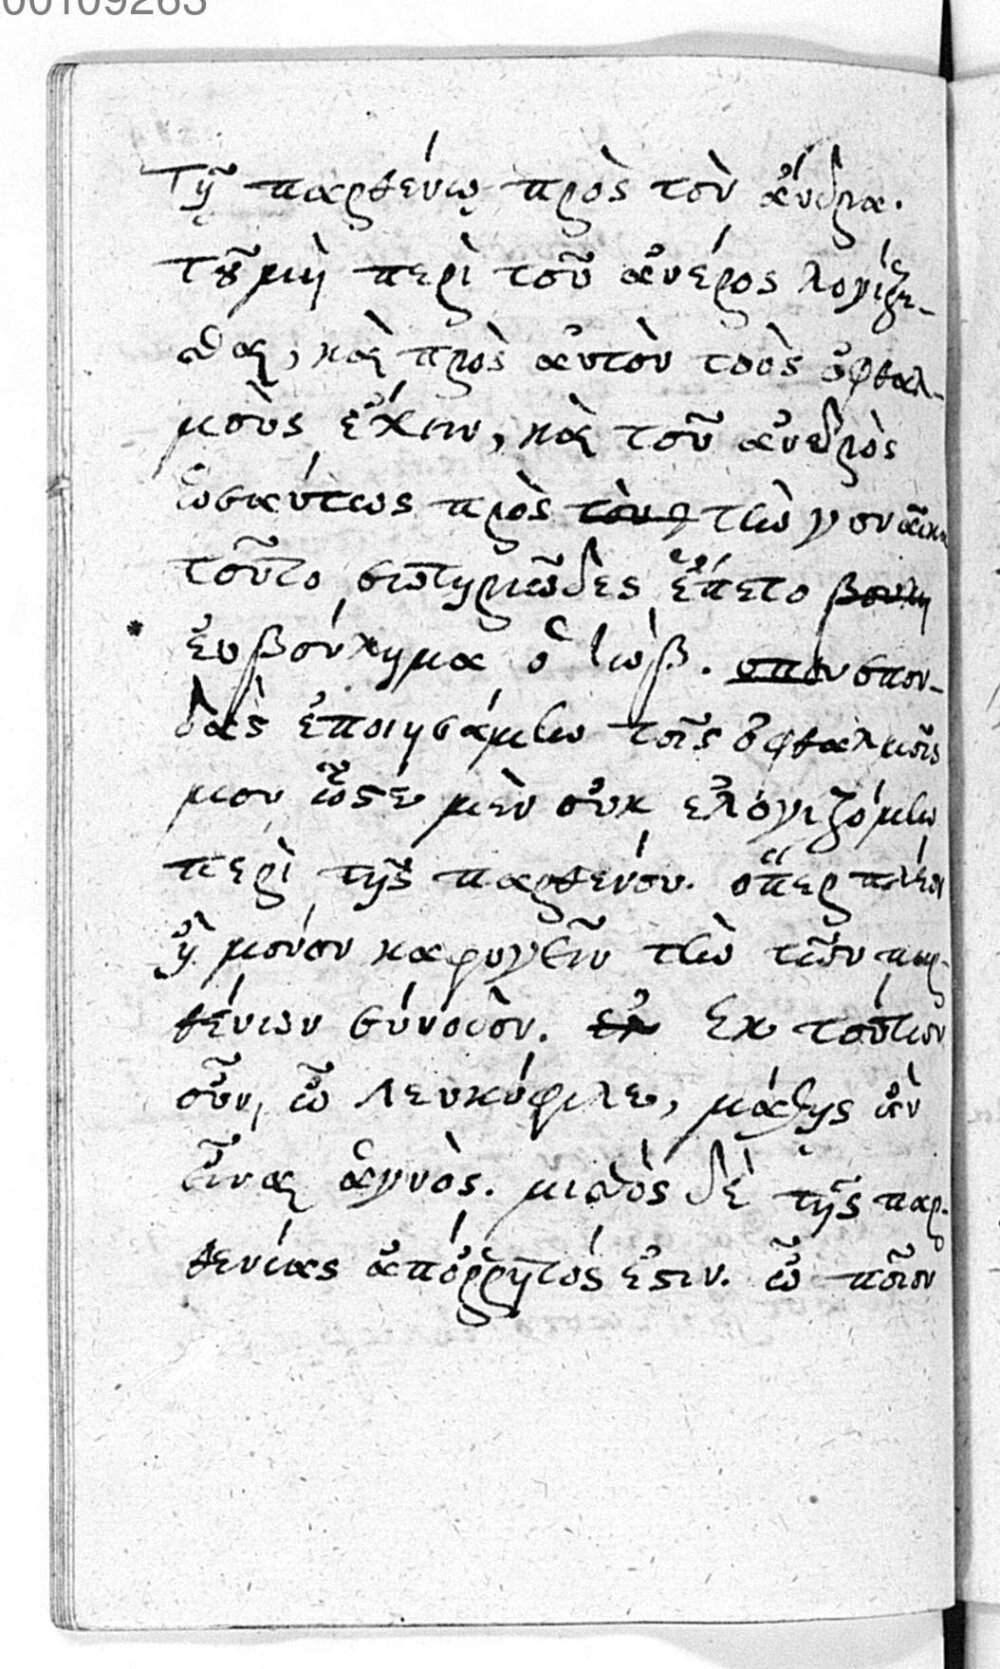 00109263
Τῇ παρθένῳ πρὸς τὸν ἄνδρα.
τοῦ μὴ περὶ τοῦ ἀνέρος λογίζε-
σθαι, καὶ πρὸς αὐτὸν τοὺς ὀφθαλ-
μοὺς ἔχειν, καὶ τοῦ ἀνδρὸς
ὡσαύτως πρὸς τὴν γυναῖκα
τοῦτο σωτηριῶδες εἵπετο βουλη
ἐνβούλημα ὁ Ἰώβ. σπου σπον-
δὰς ἐποιησάμην τοῖς ὀφθαλμοῖς
μου ὥστε μὲν οὐκ ἐλογιζόμην
περὶ τῆς παρθένου. ὅπερ πλέον
ἢ μόνον καρυγεῖν τὴν τῶν παρ-
θένων σύνοδον. ἐκ Ἐκ τούτων
οὖν, ὦ Λευκόφιλε, μάθῃς ἂν
εἶναι ἁγνὸς. μισθὸς δὲ τῆς παρ-
θενίας ἀπόρρητός ἐστιν. ὦ ποῖον